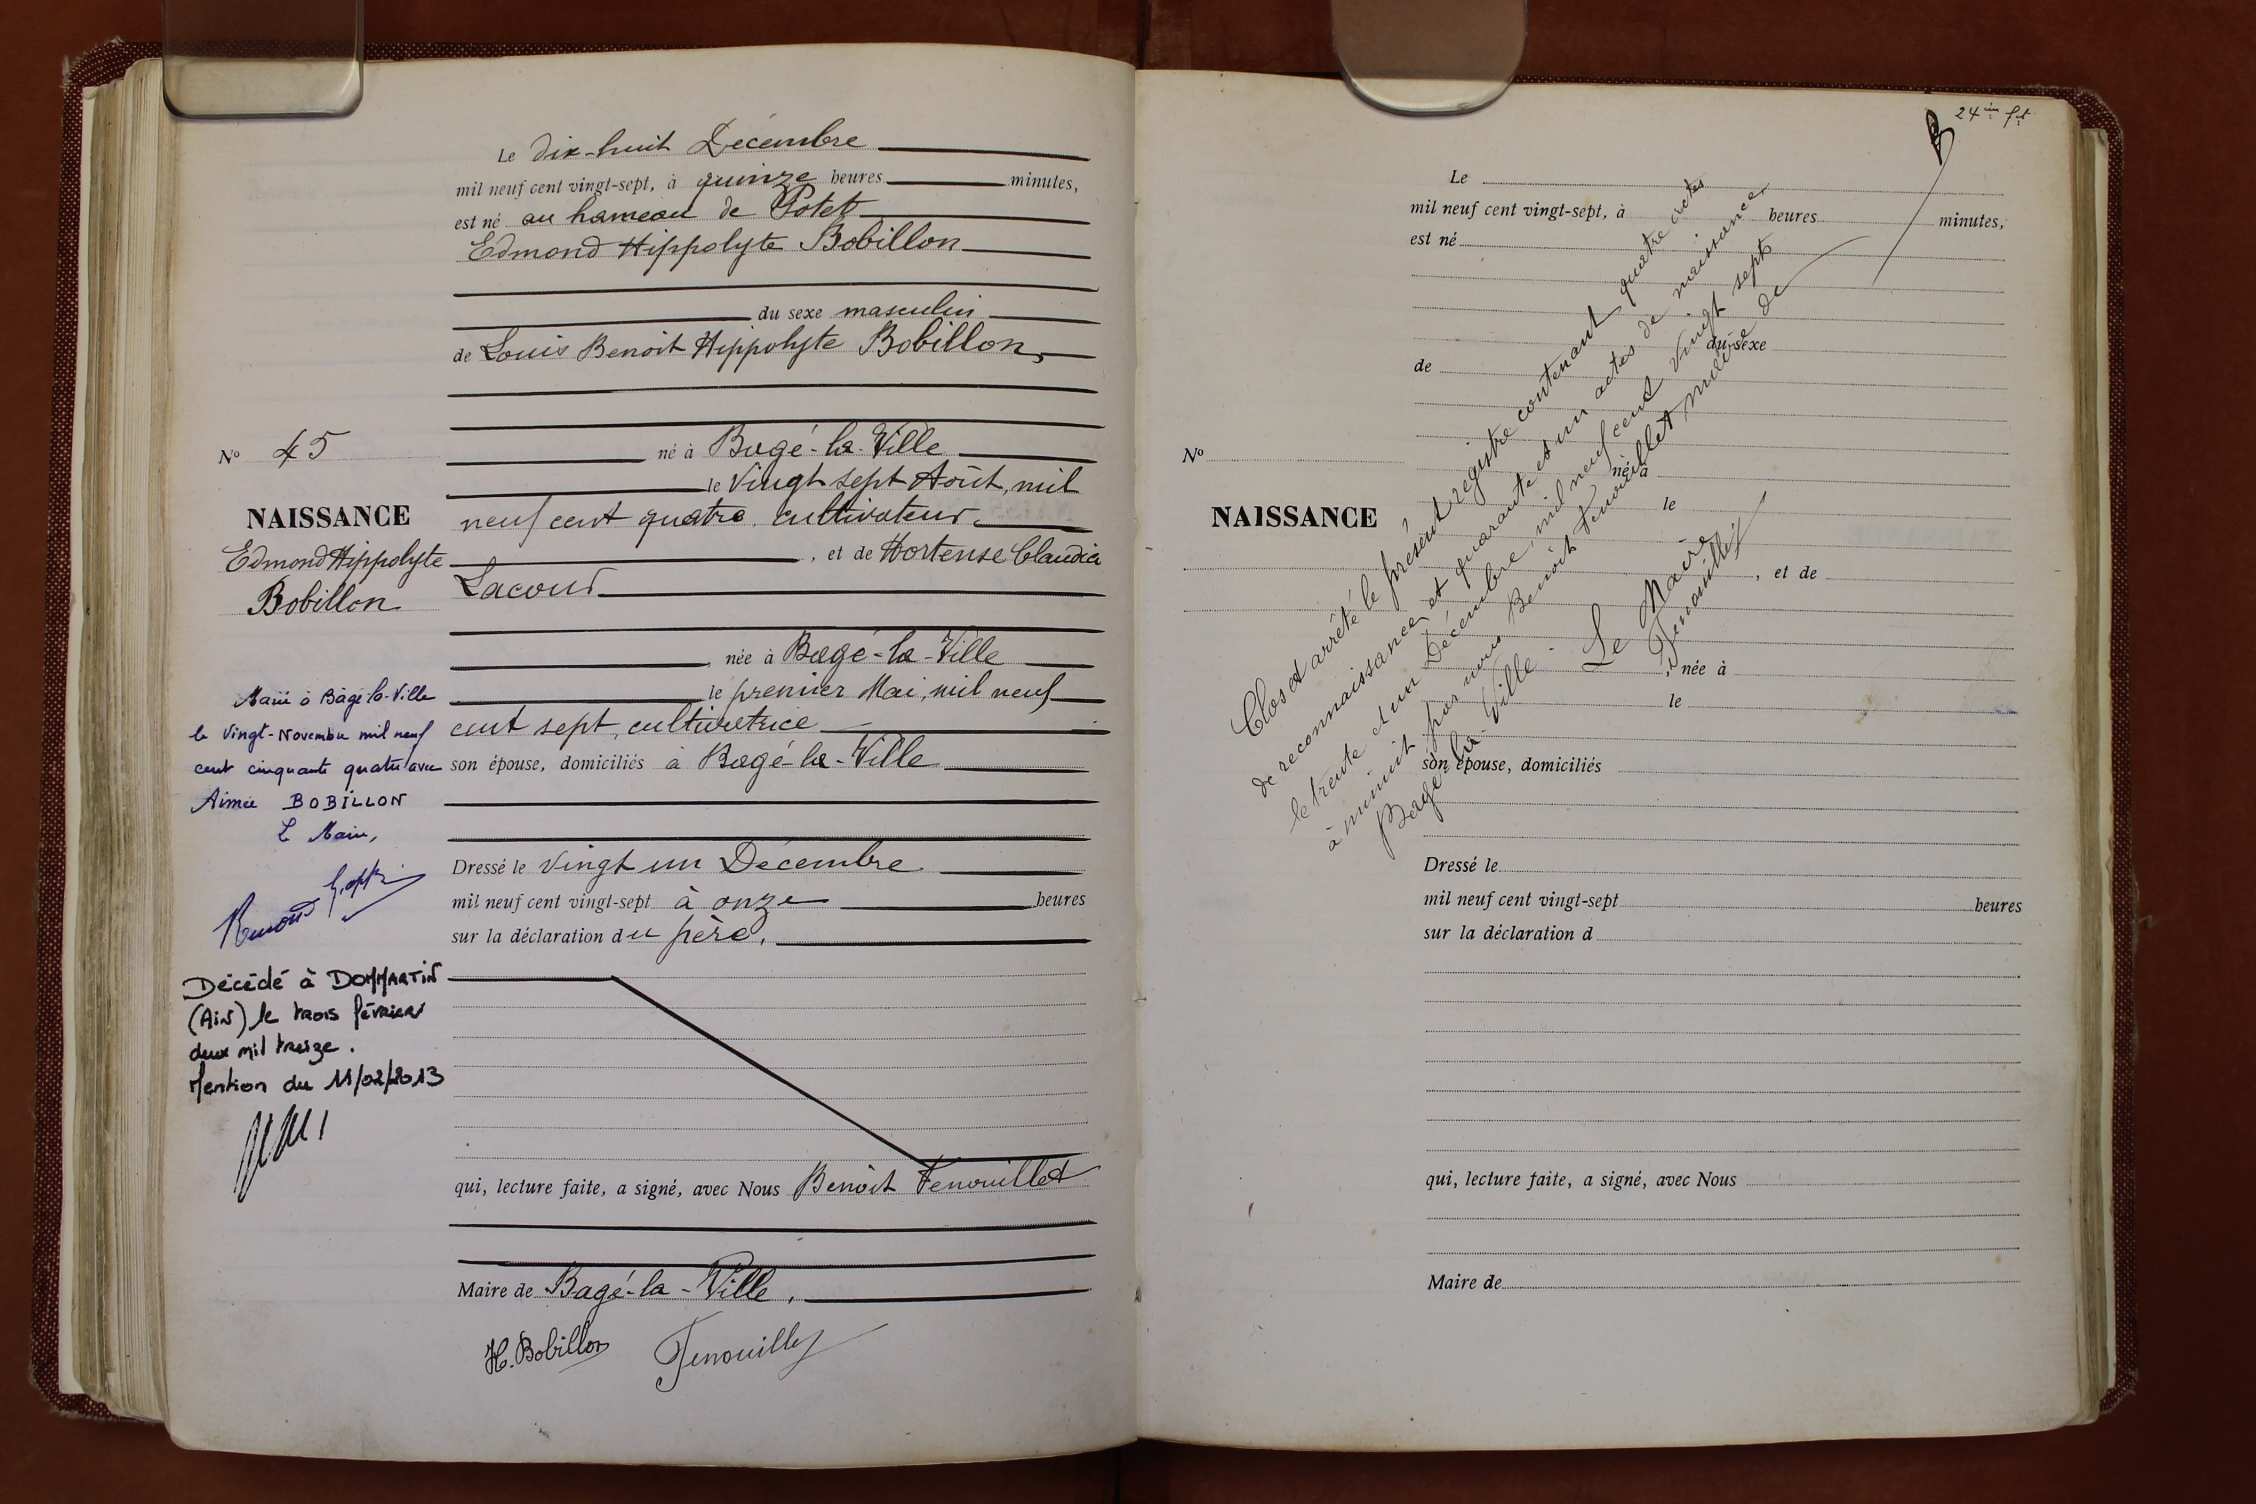 Le dix-huit Décembre
mil neuf cent vingt-sept, à quinze heures minutes,
est né au hameau de Potet
Edmond Hippolyte Bobillon
du sexe masculin
de Louis Benoit Hippolyte Bobillon,
né à Bagé-la-Ville
le vingt sept Août, mil
neuf cent quatre, cultivateur,
, et de Hortense Claudia
Lacour
, née à Bagé-la-Ville
le premier Mai, mil neuf
cent sept, cultivatrice
son épouse, domiciliés à Bagé-la-Ville
Dressé le vingt un Décembre
mil neuf cent vingt-sept à onze heures
sur la déclaration du père,
qui, lecture faite, a signé, avec Nous Benoit Fenouillet
Maire de Bagé-la-Ville,
H. Bobillon Fenouillet
No 45
NAISSANCE
Edmond Hippolyte
Bobillon
Marié à Bâgé-la-Ville
le vingt-Novembre mil neuf
cent cinquante quatre avec
Aimée BOBILLON
Le Maire,
Décédé à DOMMARTIN
(AIN) le trois février
deux mil treize.
Mention du 11/02/2013
24
No
NAISSANCE
Le
mil neuf cent vingt-sept, à heures minutes,
est né
du sexe
de
né à
le
, et de
, née à
le
son épouse, domiciliés
Dressé le
mil neuf cent vingt-sept heures
sur la déclaration d
qui, lecture faite, a signé, avec Nous
Maire de
Clos et arrêté le présent registre contenant quatre actes
de reconnaissance et quarante et un actes de naissance
le trente et un Décembre, mil neuf cent vingt sept
à minuit par nous Benoit Fenouillet Maire de
Bagé-la-Ville.
Le Maire
Fenouillet